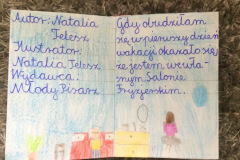 Autor: Natalia
Telesz
Ilustrator:
Natalia Telesz
Wydawca:
Młody Pisarz
Gdy obudziłam
się w pierwszy dzień
wakacji okazało się,
że jestem we wła-
snym Salonie
Fryzjerskim.